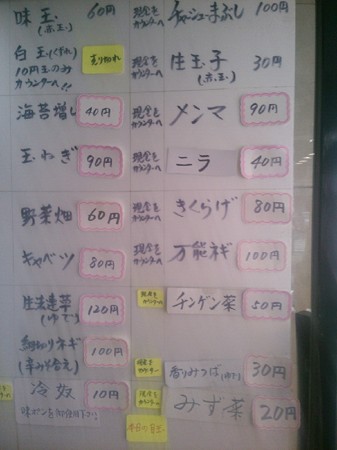 味玉 60円
(赤玉)
現金を
カウンターへ
チャーシューまぶし 100円
白玉(くずれ)
10円玉のみ
カウンターへ!!
売り切れ
現金を
カウンターへ
生玉子 30円
(赤玉)
海苔増し 40円
現金を
カウンターへ
メンマ 90円
玉ねぎ 90円
現金を
カウンターへ
ニラ 40円
野菜畑 60円
現金を
カウンターへ
きくらげ 80円
キャベツ 80円
現金を
カウンターへ
万能ネギ 100円
120円
(ゆで)
現金を
カウンターへ
チンゲン菜 50円
ネギ 100円
(辛みそ合え)
現金を
カウンターへ
香りみつば(ゆで) 30円
冷奴 10円
現金を
カウンターへ
みず菜 20円